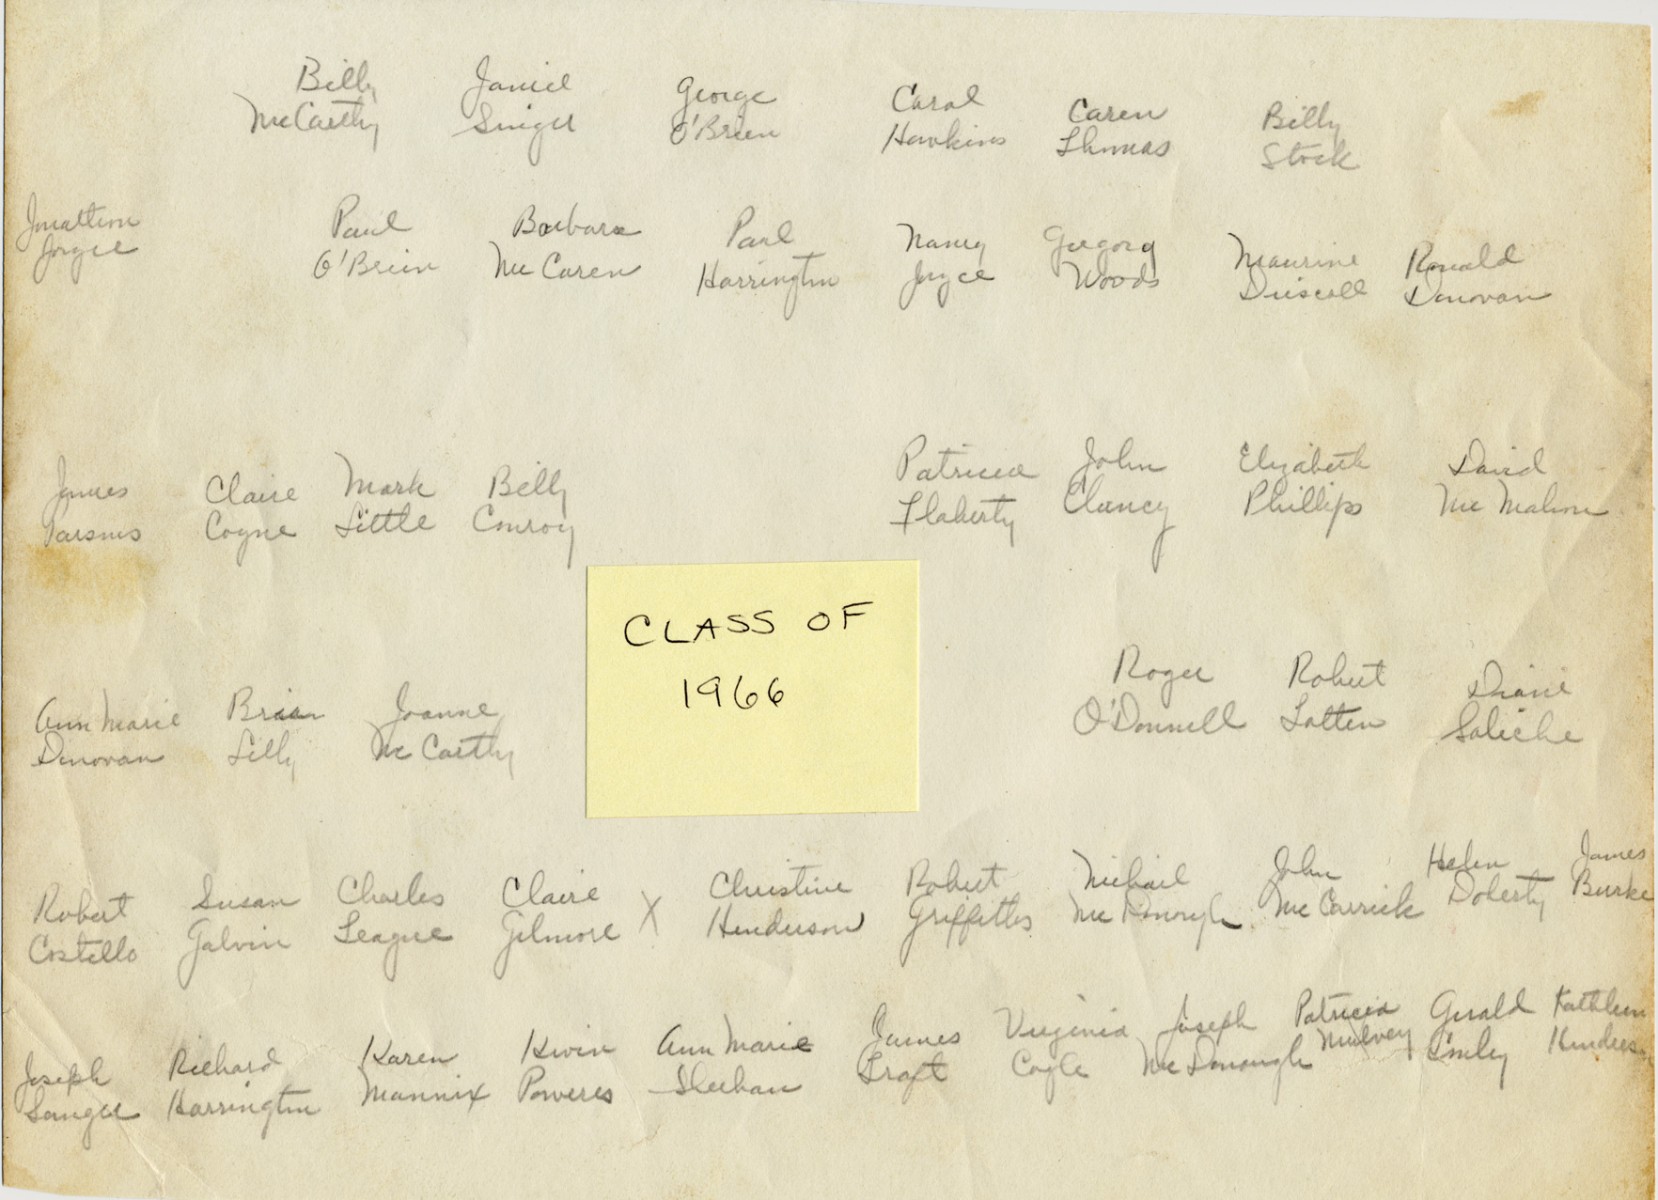 Billy Janice George Carol Caren Billy
McCarthy Singer O'Brien Hawkins Thomas Stock
Jonathon Paul Barbara Paul Nancy Gregory Maurine Ronald
Joyce O'Brien McCaren Harrington Joyce Woods Driscoll Donovan
James Claire Mark Billy Patricia John Elizabeth David
Parsons Coyne Little Conroy Flaherty Clancy Phillips McMahon
CLASS OF
1966
Ann Marie Brian Joanne Roger Robert Diane
Donovan Lilly McCarthy O'Donnell Totten Saliche
Robert Susan Charles Claire X Christine Robert Michael John Helen James
Costello Galvin League Gilmore Henderson Griffiths McDonough McCarrick Doherty Burke
Joseph Richard Karen Kevin Ann Marie James Virginia Joseph Patricia Gerald Kathleen
Sanger Harrington Mannix Poweres Sheehan Coyle McDonough Mulvey